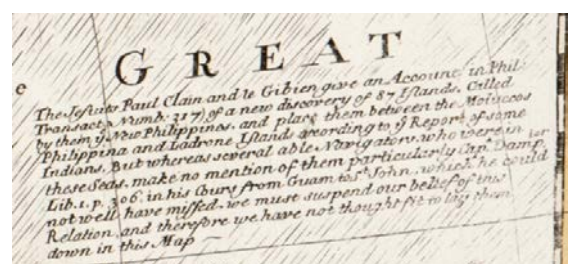 GREAT
e
The Jesuits Paul Clain and le Gibien give an Account in Phil:
Transact. Numb: 317) of a new discovery of 87 Islands. Called
by them yͤ New Philippines, and place them between the Moluccos
Philippina and Ladrone Islands according to yͤ Report of some
Indians. But whereas several able Navigators who were in
these Seas, make no mention of them particularly Cap: Damp.ier
Lib. 1. p. 306. in his Cours from Guam to Sͭ John, which he could
not well have missed, we must suspend our belief of this
Relation, and therefore we have not thought fit to lay them
down in this Map